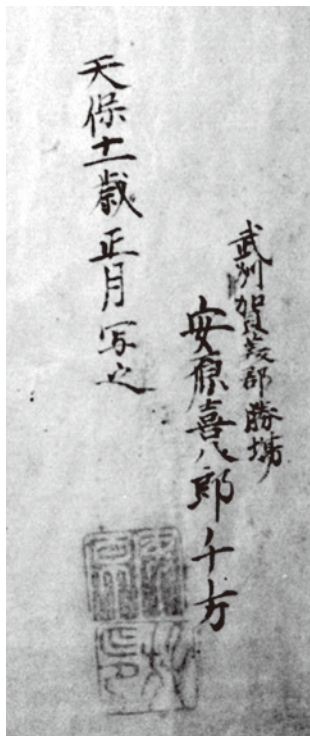 武州賀美郡勝場
安原喜八郎千方
天保十一歳正月写之